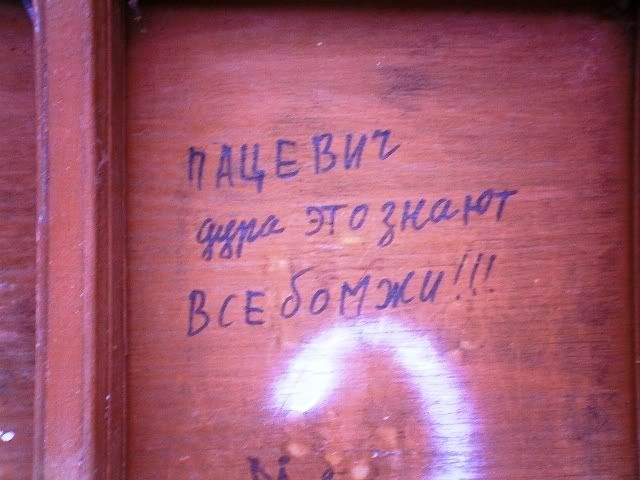 ПАЦЕВИЧ
дура это знают
ВСЕ бОМЖИ!!!